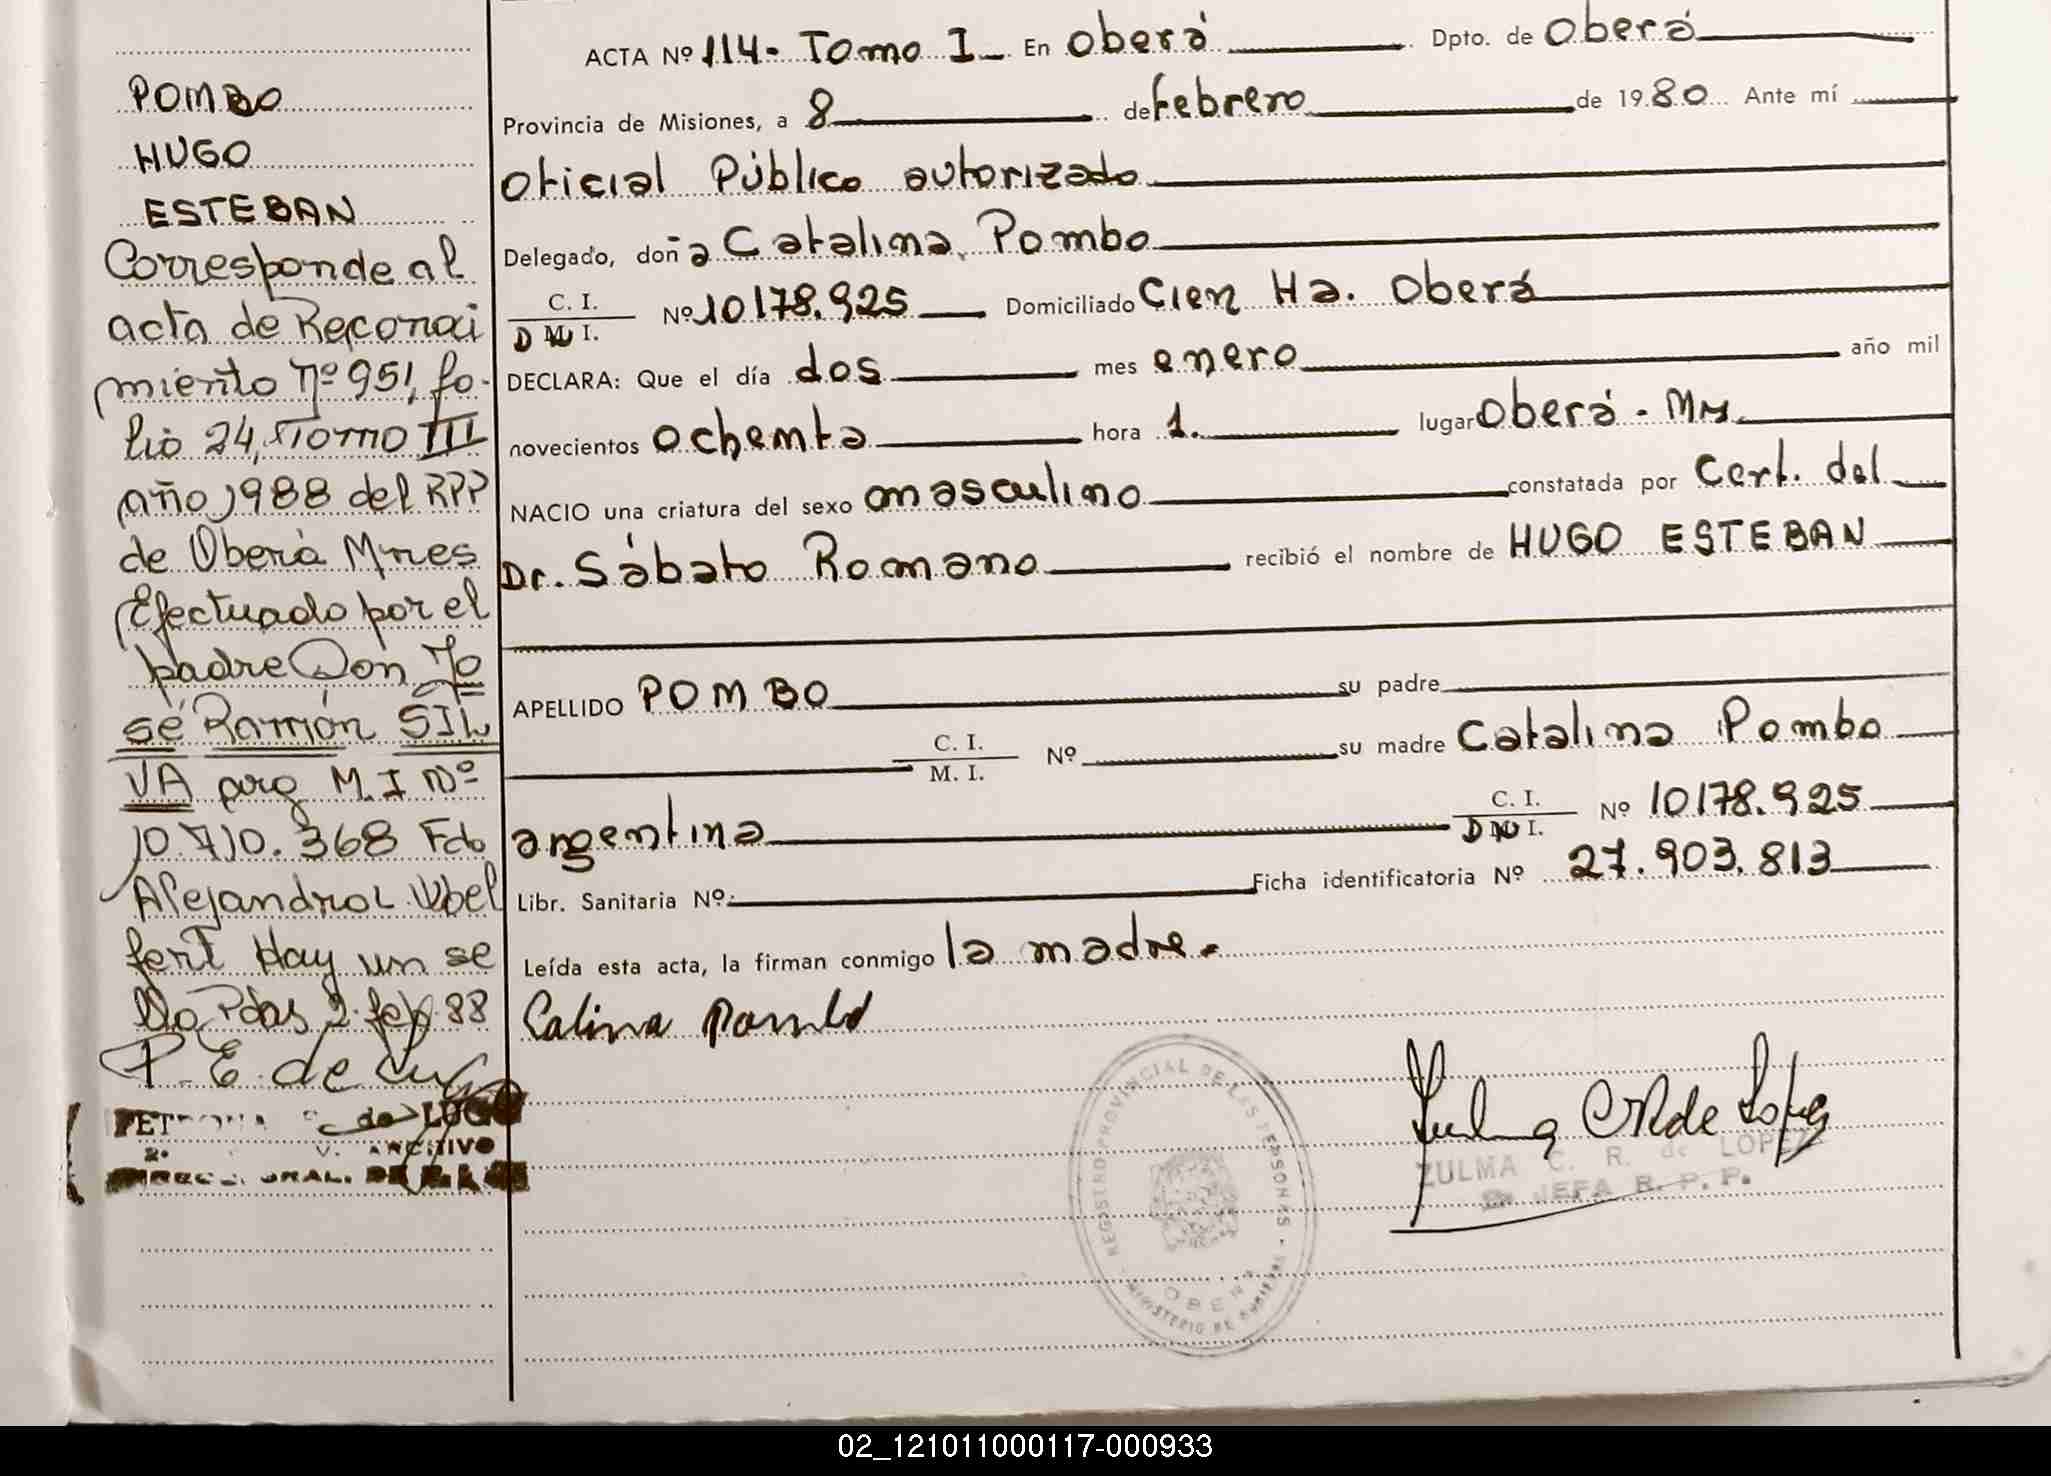 POMBO
HUGO
ESTEBAN
Corresponde al
acta de Reconoci
miento Nº 951, fo-
lio 24, Tomo III
año 1988 del RPP
de Oberá Mnes
Efectuado por el
padre Don Jo
sé Ramón SIL
VA arg M.I Nº
10.710.368 Fdo
Alejandro
fert Hay un se
llo Pdas 2. feb. 88
P. E. de Lugo
de LUGO
ARCHIVO
ACTA Nº 114 - Tomo I En Oberá Dpto. de Oberá
Provincia de Misiones, a 8 de febrero de 1980 Ante mí
Oficial Público autorizado
Delegado, doña Catalina Pombo
C. I. DNI. Nº 10178.925 Domiciliado Cien Ha. Oberá
DECLARA: Que el día dos mes enero año mil
novecientos ochenta hora 1. lugar Oberá - Mns.
NACIO una criatura del sexo masculino constatada por Cert. del
Dr. Sábato Romano recibió el nombre de HUGO ESTEBAN
APELLIDO POMBO su padre
C. I. M. I. Nº su madre Catalina Pombo
argentina C. I. DNI. Nº 10178.925
Libr. Sanitaria Nº: Ficha identificatoria Nº 27.903.813
Leída esta acta, la firman conmigo la madre.
Calina Pombo
REGISTRO PROVINCIAL DE LAS PERSONAS
OBERA
MINISTERIO DE
Zulma C R de Lopez
ZULMA C. R. de LOPEZ
JEFA R. P. P.
02_121011000117-000933